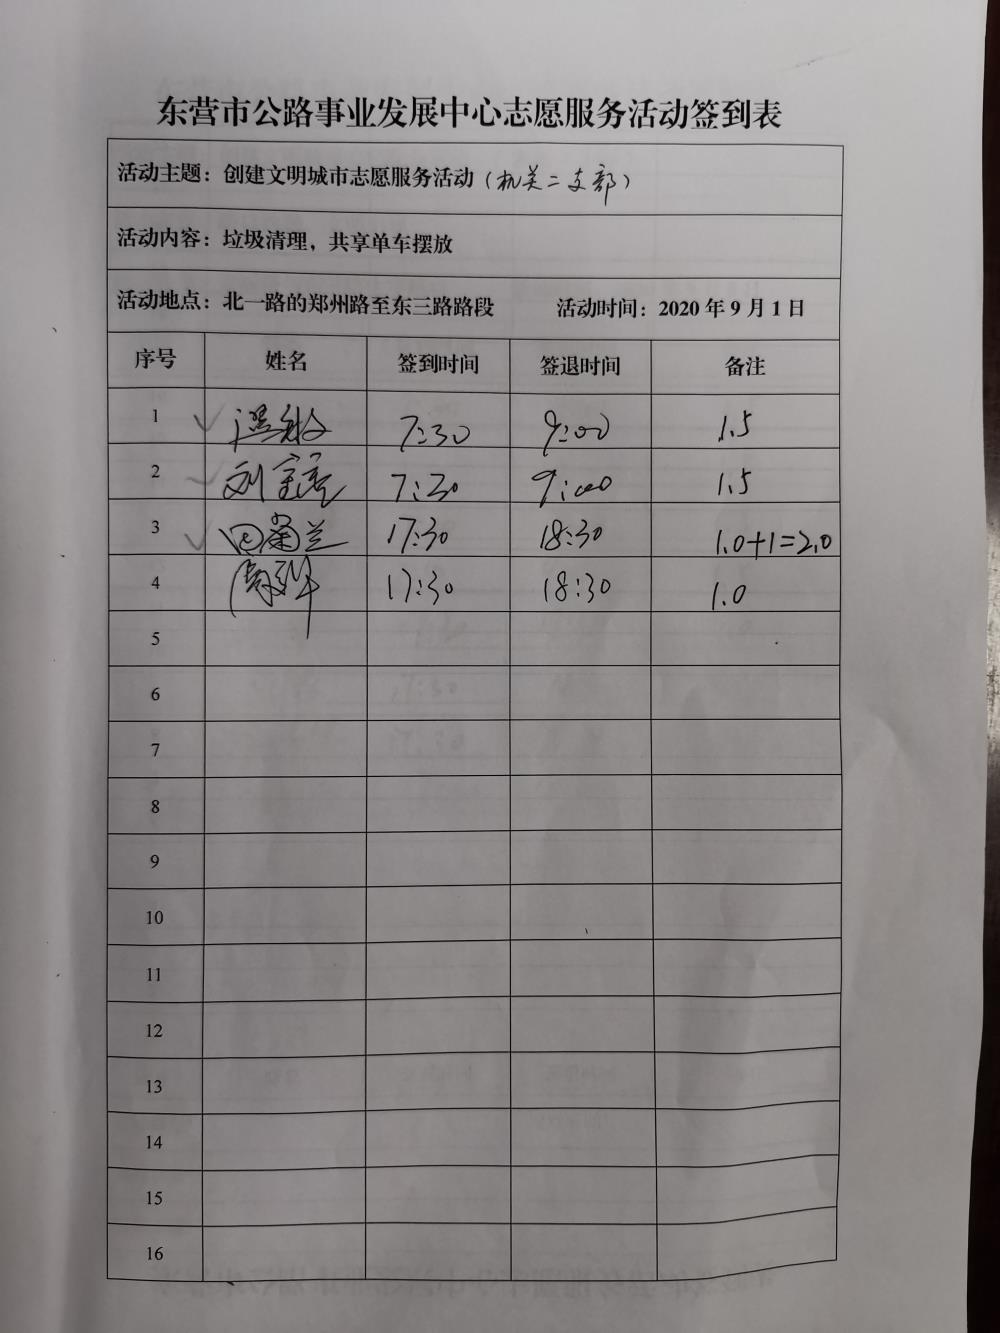 东营市公路事业发展中心志愿服务活动签到表
活动主题：创建文明城市志愿服务活动（机关二支部）
活动内容：垃圾清理，共享单车摆放
活动地点：北一路的郑州路至东三路路段 活动时间：2020年9月1日
序号 姓名 签到时间 签退时间 备注
1 7:30 9:00 1.5
2 刘 7:30 9:00 1.5
3 兰 17:30 18:30 1.0+1=2.0
4 17:30 18:30 1.0
5
6
7
8
9
10
11
12
13
14
15
16